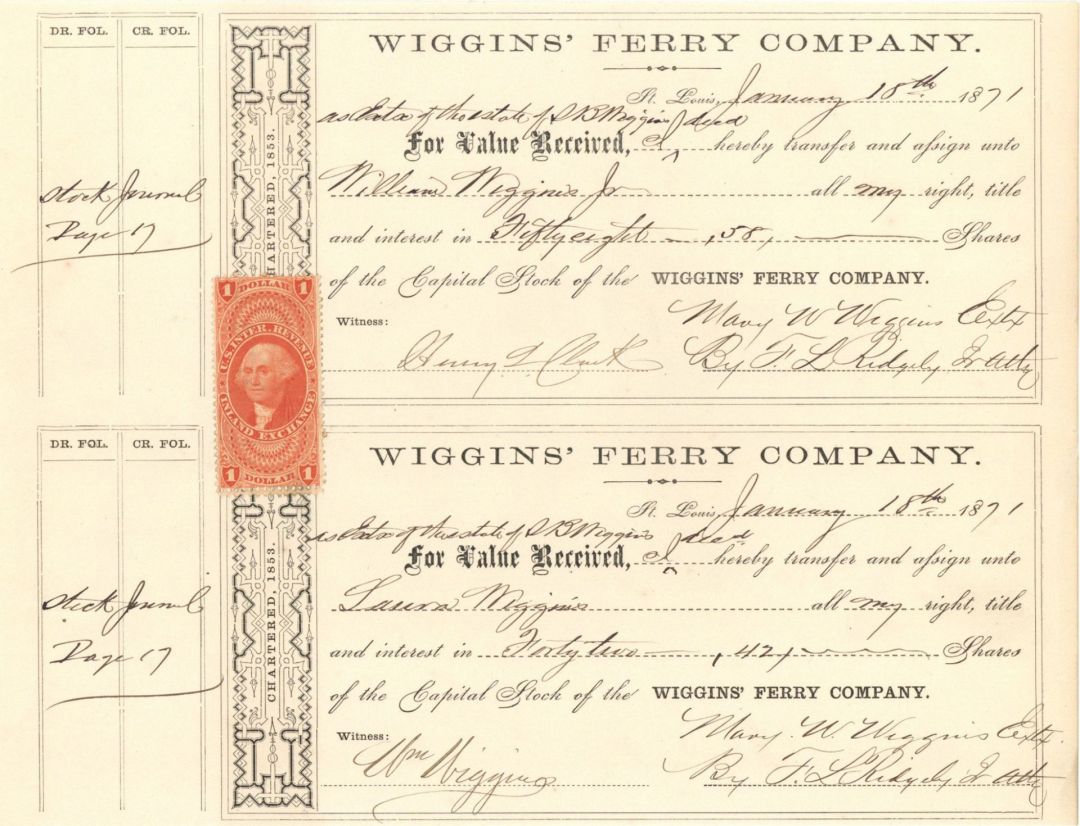 DR. FOL. CR. FOL.
WIGGINS' FERRY COMPANY.
St. Louis, January 18th 1871
as Extx of the estate of S B Wiggins decd
For Value Received, I hereby transfer and assign unto
William Wiggins Jr all my right, title
and interest in Fifty eight ,58, Shares
of the Capital Stock of the WIGGINS' FERRY COMPANY.
Witness:
Mary W Wiggins Extx
By F. L Ridgely Jr atty
Stock Journal
Page 17
CHARTERED, 1853.
1 DOLLAR 1
U.S. INTER. REVENUE
INLAND EXCHANGE
1 DOLLAR 1
DR. FOL. CR. FOL.
WIGGINS' FERRY COMPANY.
St. Louis, January 18th 1871
as Extx of the estate of S B Wiggins decd
For Value Received, I hereby transfer and assign unto
Laura Wiggins all my right, title
and interest in Forty two ,42, Shares
of the Capital Stock of the WIGGINS' FERRY COMPANY.
Witness:
Wm Wiggins
Mary W. Wiggins Extx.
By F. L Ridgely Jr atty
Stock Journal
Page 17
CHARTERED, 1853.